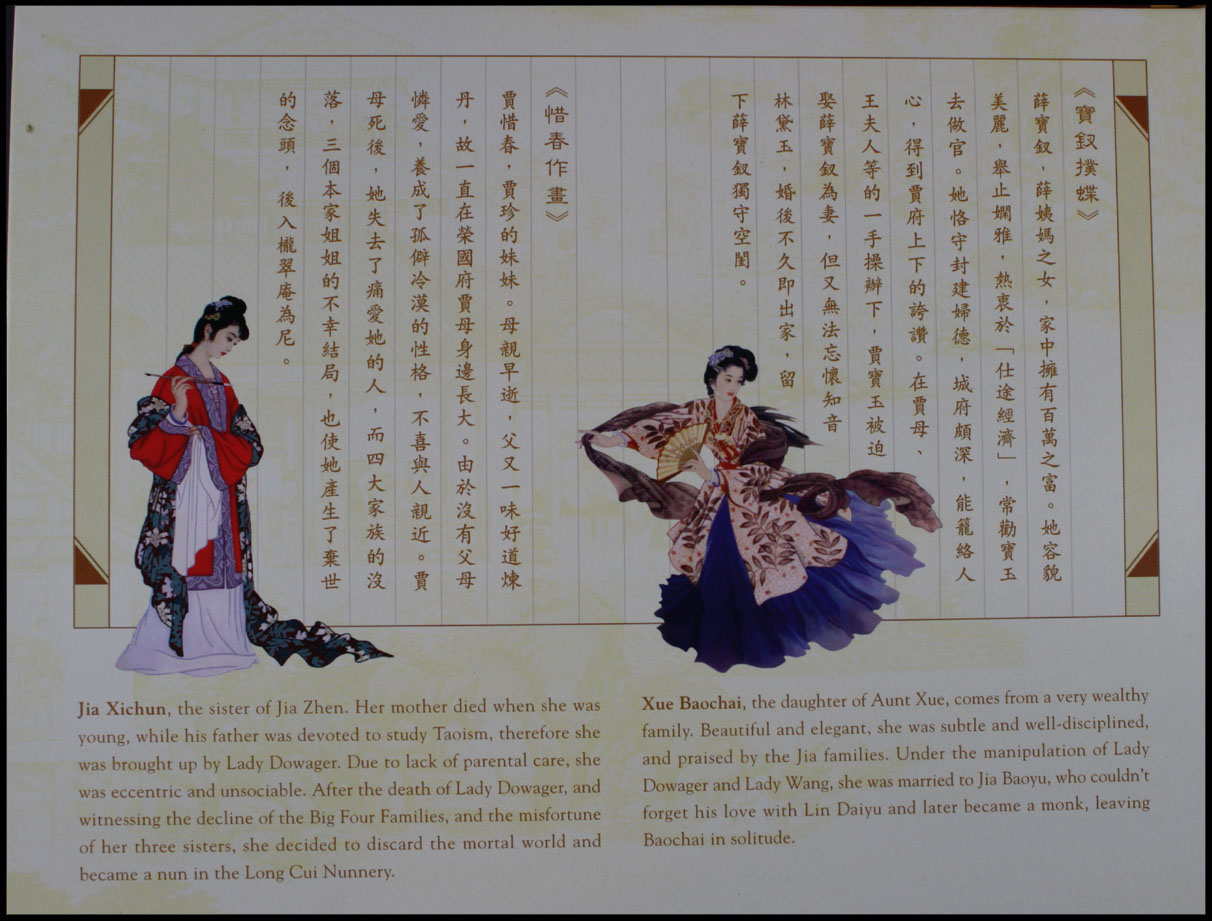 《寶釵撲蝶》
薛寶釵，薛姨媽之女，家中擁有百萬之富。她容貌
美麗，舉止嫻雅，熱衷於「仕途經濟」，常勸寶玉
去做官。她恪守封建婦德，城府頗深，能籠絡人
心，得到賈府上下的誇讚。在賈母、
王夫人等的一手操辦下，賈寶玉被迫
娶薛寶釵為妻，但又無法忘懷知音
林黛玉，婚後不久即出家，留
下薛寶釵獨守空閨。
《惜春作畫》
賈惜春，賈珍的妹妹。母親早逝，父又一味好道煉
丹，故一直在榮國府賈母身邊長大。由於沒有父母
憐愛，養成了孤僻冷漠的性格，不喜與人親近。賈
母死後，她失去了痛愛她的人，而四大家族的沒
落，三個本家姐姐的不幸結局，也使她產生了棄世
的念頭，後入櫳翠庵為尼。
Jia Xichun, the sister of Jia Zhen. Her mother died when she was
young, while his father was devoted to study Taoism, therefore she
was brought up by Lady Dowager. Due to lack of parental care, she
was eccentric and unsociable. After the death of Lady Dowager, and
witnessing the decline of the Big Four Families, and the misfortune
of her three sisters, she decided to discard the mortal world and
became a nun in the Long Cui Nunnery.
Xue Baochai, the daughter of Aunt Xue, comes from a very wealthy
family. Beautiful and elegant, she was subtle and well-disciplined,
and praised by the Jia families. Under the manipulation of Lady
Dowager and Lady Wang, she was married to Jia Baoyu, who couldn't
forget his love with Lin Daiyu and later became a monk, leaving
Baochai in solitude.